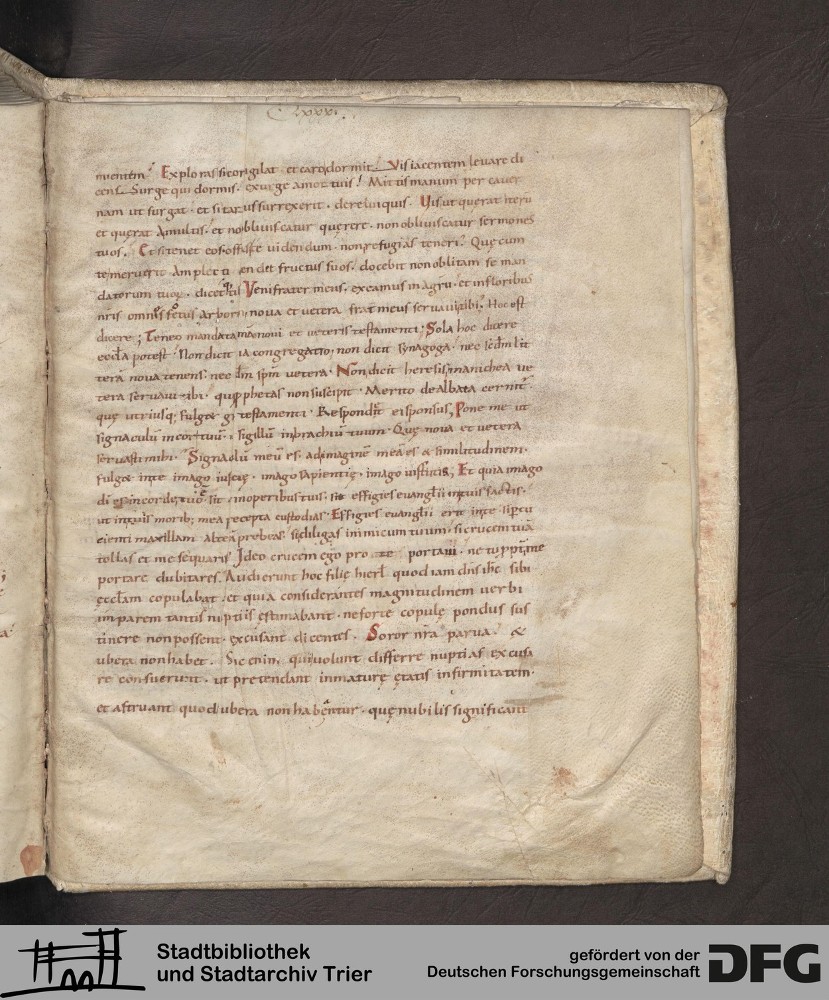 Explorassi cor uigilat et caro dormit. Vis iacentem leuare di
cens. Surge qui dormis. exurge a mortuis! Mittis manum per cauer
nam ut surgat. et si tarus surrexerit. derelinquis. Vis ut querat iteru
et querat a multis. et non obliuiscatur querere. non obliuiscatur sermones
tuos. Et si tenet eos. offusse uidendum. non refugias teneri. Quę cum
te meruerit amplecti. en det fructus suos. docebit non oblitam se man
datorum tuoꝝ. dicet tibi Veni frater meus. exeamus in agrū. et in floribus
nris omnis fetus arborū noua et uetera frat meus seruaui tibi. Hoc est
dicere; Teneo mandata noui et ueteris testamenti. Sola hoc dicere
eccla potest. Non dicit ia congregatio, non dicit synagoga. nec scdm lit
terā noua tenens. nec scdm spm uetera. Non dicit heresis manichea ue
tera seruaui tibi. quę pphetas non suscipit. Merito dealbata cernit
que utriusq; fulget testamenti. Respondit ei sponsus, Pone me ut
signaculū in cor tuū. ut sigillū in brachiū tuum. Quę noua et uetera
seruasti mihi. Signaculū meū es. ad imaginē meā es & similitudinem.
Fulget in te imago iusticię. imago sapientię. imago uirtutis; Et quia imago
di est in corde tuo. sit in operibus tuis. sit effigies euanglii in tuis factis.
ut in tuis morib; mea precepta custodias. Effigies euanglii erit in te si pcu
tienti maxillam alterā prebeas. si diligas inimicum tuum. si crucem tuā
tollas et me sequaris. Ideo crucem ego pro te portaui. ne tu ppt me
portare dubitares. Audierunt hoc filię hierl quod iam dns ihc sibi
ęcclam copulabat. et quia considerantes magnitudinem uerbi
imparem tantis nuptiis estimabant. ne forte copulę pondus sus
tinere non possent. excusant dicentes. Soror nra parua. &
ubera non habet. Sic enim qui uolunt differre nuptias excusa
re consuerunt. ut pretendant inmaturę ętatis infirmitatem.
et astruant quod ubera non habentur. quę nubilis significant
Stadtbibliothek
und Stadtarchiv Trier
gefördert von der
Deutschen Forschungsgemeinschaft
DFG